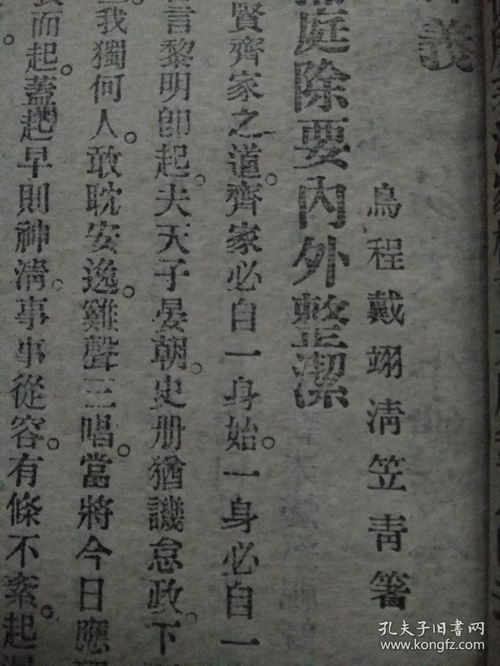 義
烏程戴翊淸笠青箸
庭除要內外整潔
賢齊家之道。齊家必自一身始。一身必自一
言黎明卽起。夫天子晏朝。史册猶譏怠政。下
我獨何人。敢耽安逸。雞聲三唱。當將今日應
而起。蓋起早則神淸。事事從容。有條不紊。起
孔夫子旧书网
www.kongfz.com